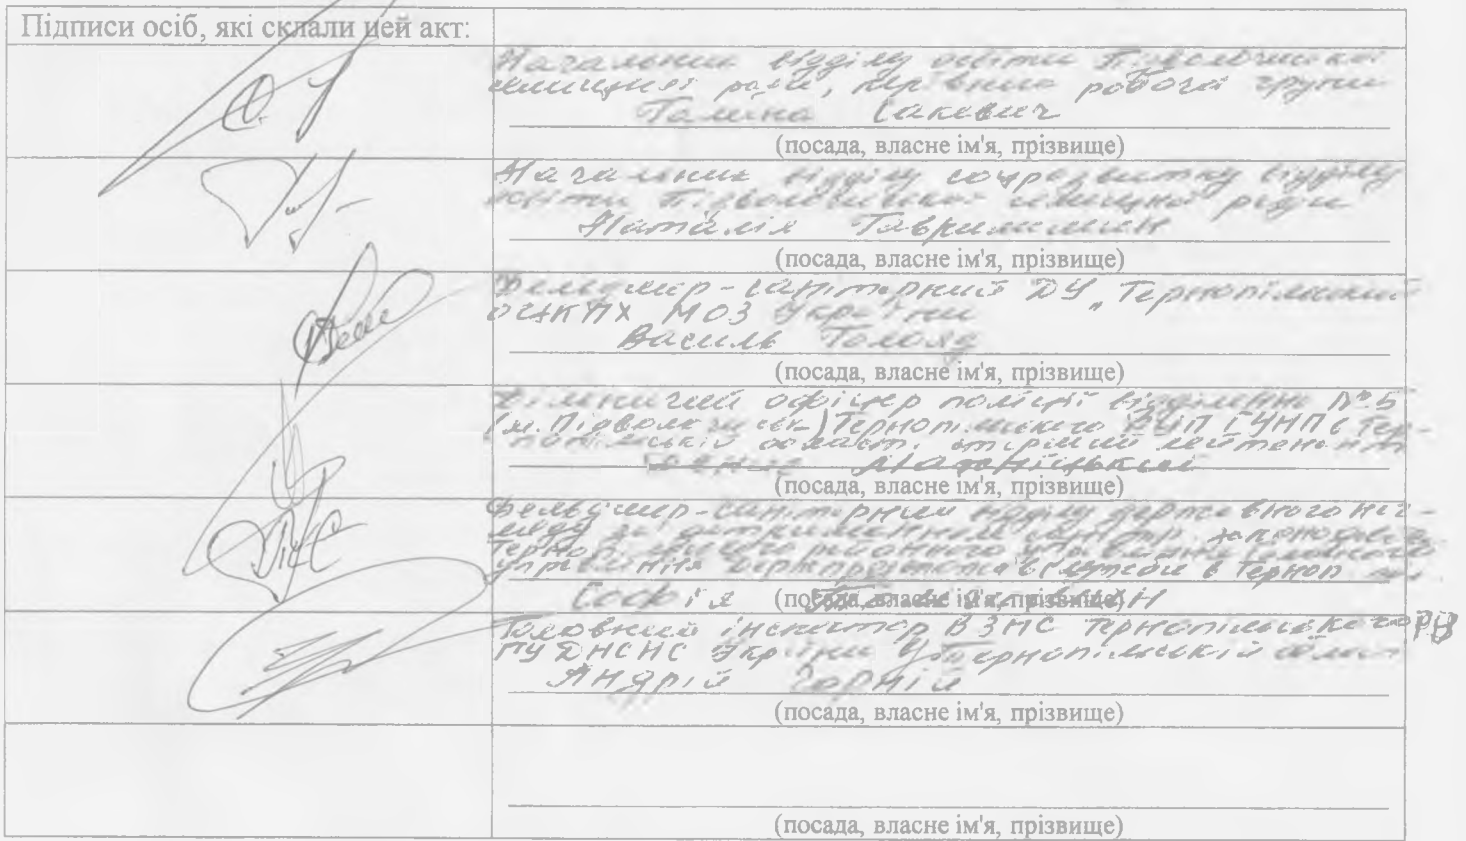 Підписи осіб, які склали цей акт:
Начальник відділу освіти Підволочиської
селищної ради, керівник робочої групи
Галина Сакевич
(посада, власне ім'я, прізвище)
Начальник відділу відділу
освіти Підволочиської селищної ради
Наталія Гаврилишин
(посада, власне ім'я, прізвище)
Фельдшер-санітарний ДУ „Тернопільський
ОЦКПХ МОЗ України
Василь Голояд
(посада, власне ім'я, прізвище)
Дільничий офіцер поліції відділення №5
(м. Підволочиськ) Тернопільського РУП ГУНП в Тер-
нопільській області, старший лейтенант
(посада, власне ім'я, прізвище)
Фельдшер-санітарний відділу державного наг-
ляду за дотриманням санітар. законодав.
Терноп. районного управління Головного
управління Держпродспоживслужби в Терноп.
Софія
(посада, власне ім'я, прізвище)
Головний інспектор ВЗНС Тернопільського РУ
ГУ ДНСНС України у Тернопільській області
Андрій Горній
(посада, власне ім'я, прізвище)
(посада, власне ім'я, прізвище)